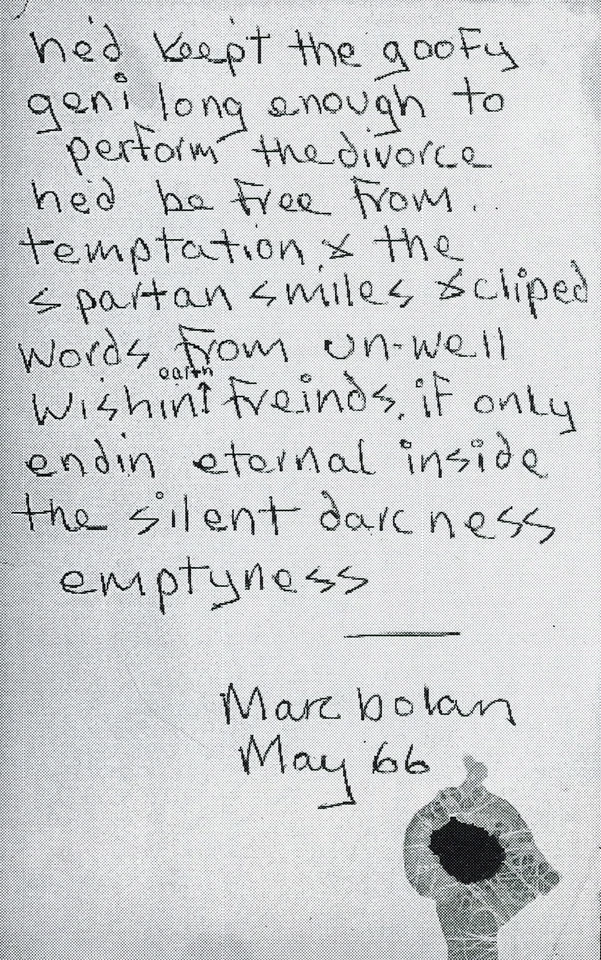 he'd keep't the goofy
geni long enough to
perform the divorce
he'd be free from.
temptation, & the
spartan smiles & cliped
words from un-well
earth
wishin↑ freinds, if only
endin eternal inside
the silent darcness
emptyness
Marc bolan
May 66